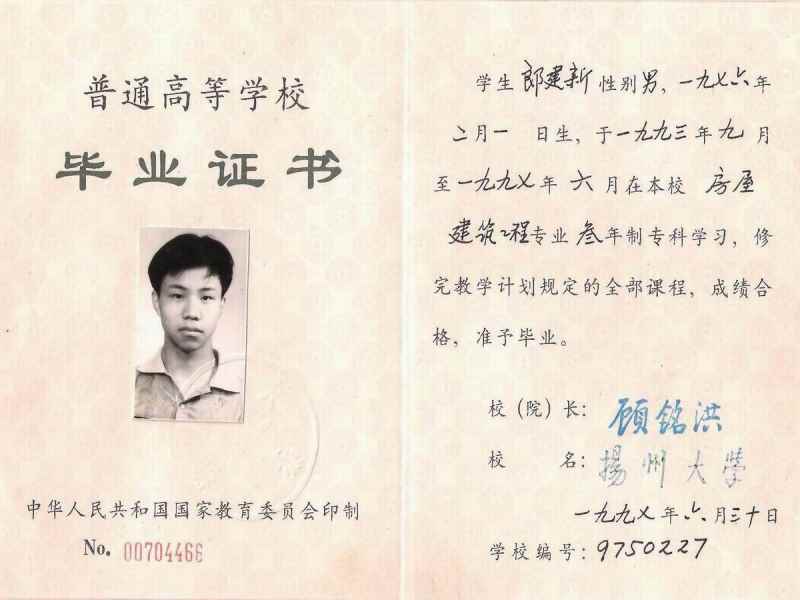 普通高等学校
毕业证书
中华人民共和国国家教育委员会印制
No. 00704466
学生 郎建新 性别 男，一九七六年
二月一 日生，于一九九三年九月
至一九九七年 六 月在本校 房屋
建筑工程专业 叁年制专科学习，修
完教学计划规定的全部课程，成绩合
格，准予毕业。
校（院）长：顾铭洪
校 名：揚州大學
一九九七年六月三十日
学校编号：9750227